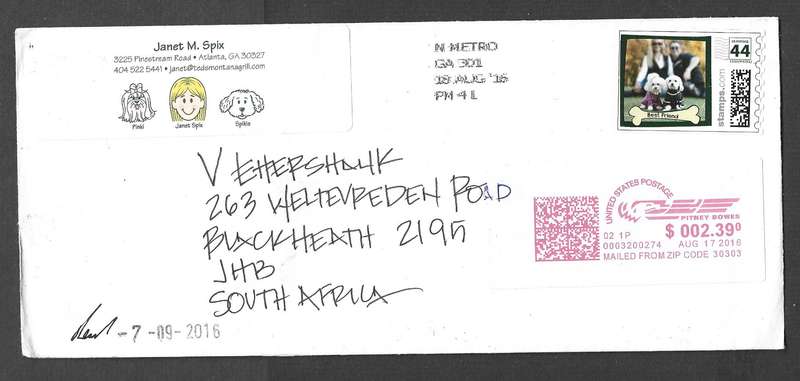 Janet M. Spix
3225 Pinestream Road • Atlanta, GA 30327
404 522 5441 • janet@tedsmontanagrill.com
Pinki
Janet Spix
Spikie
N METRO
GA 301
18 AUG '16
PM 4 L
44
stamps.com
Best Friend
V EHERSHANK
263 WELTEVREDEN ROAD
BLACKHEATH 2195
JHB
SOUTH AFRICA
UNITED STATES POSTAGE
PITNEY BOWES
$ 002.39⁰
02 1P
0003200274 AUG 17 2016
MAILED FROM ZIP CODE 30303
-7-09-2016